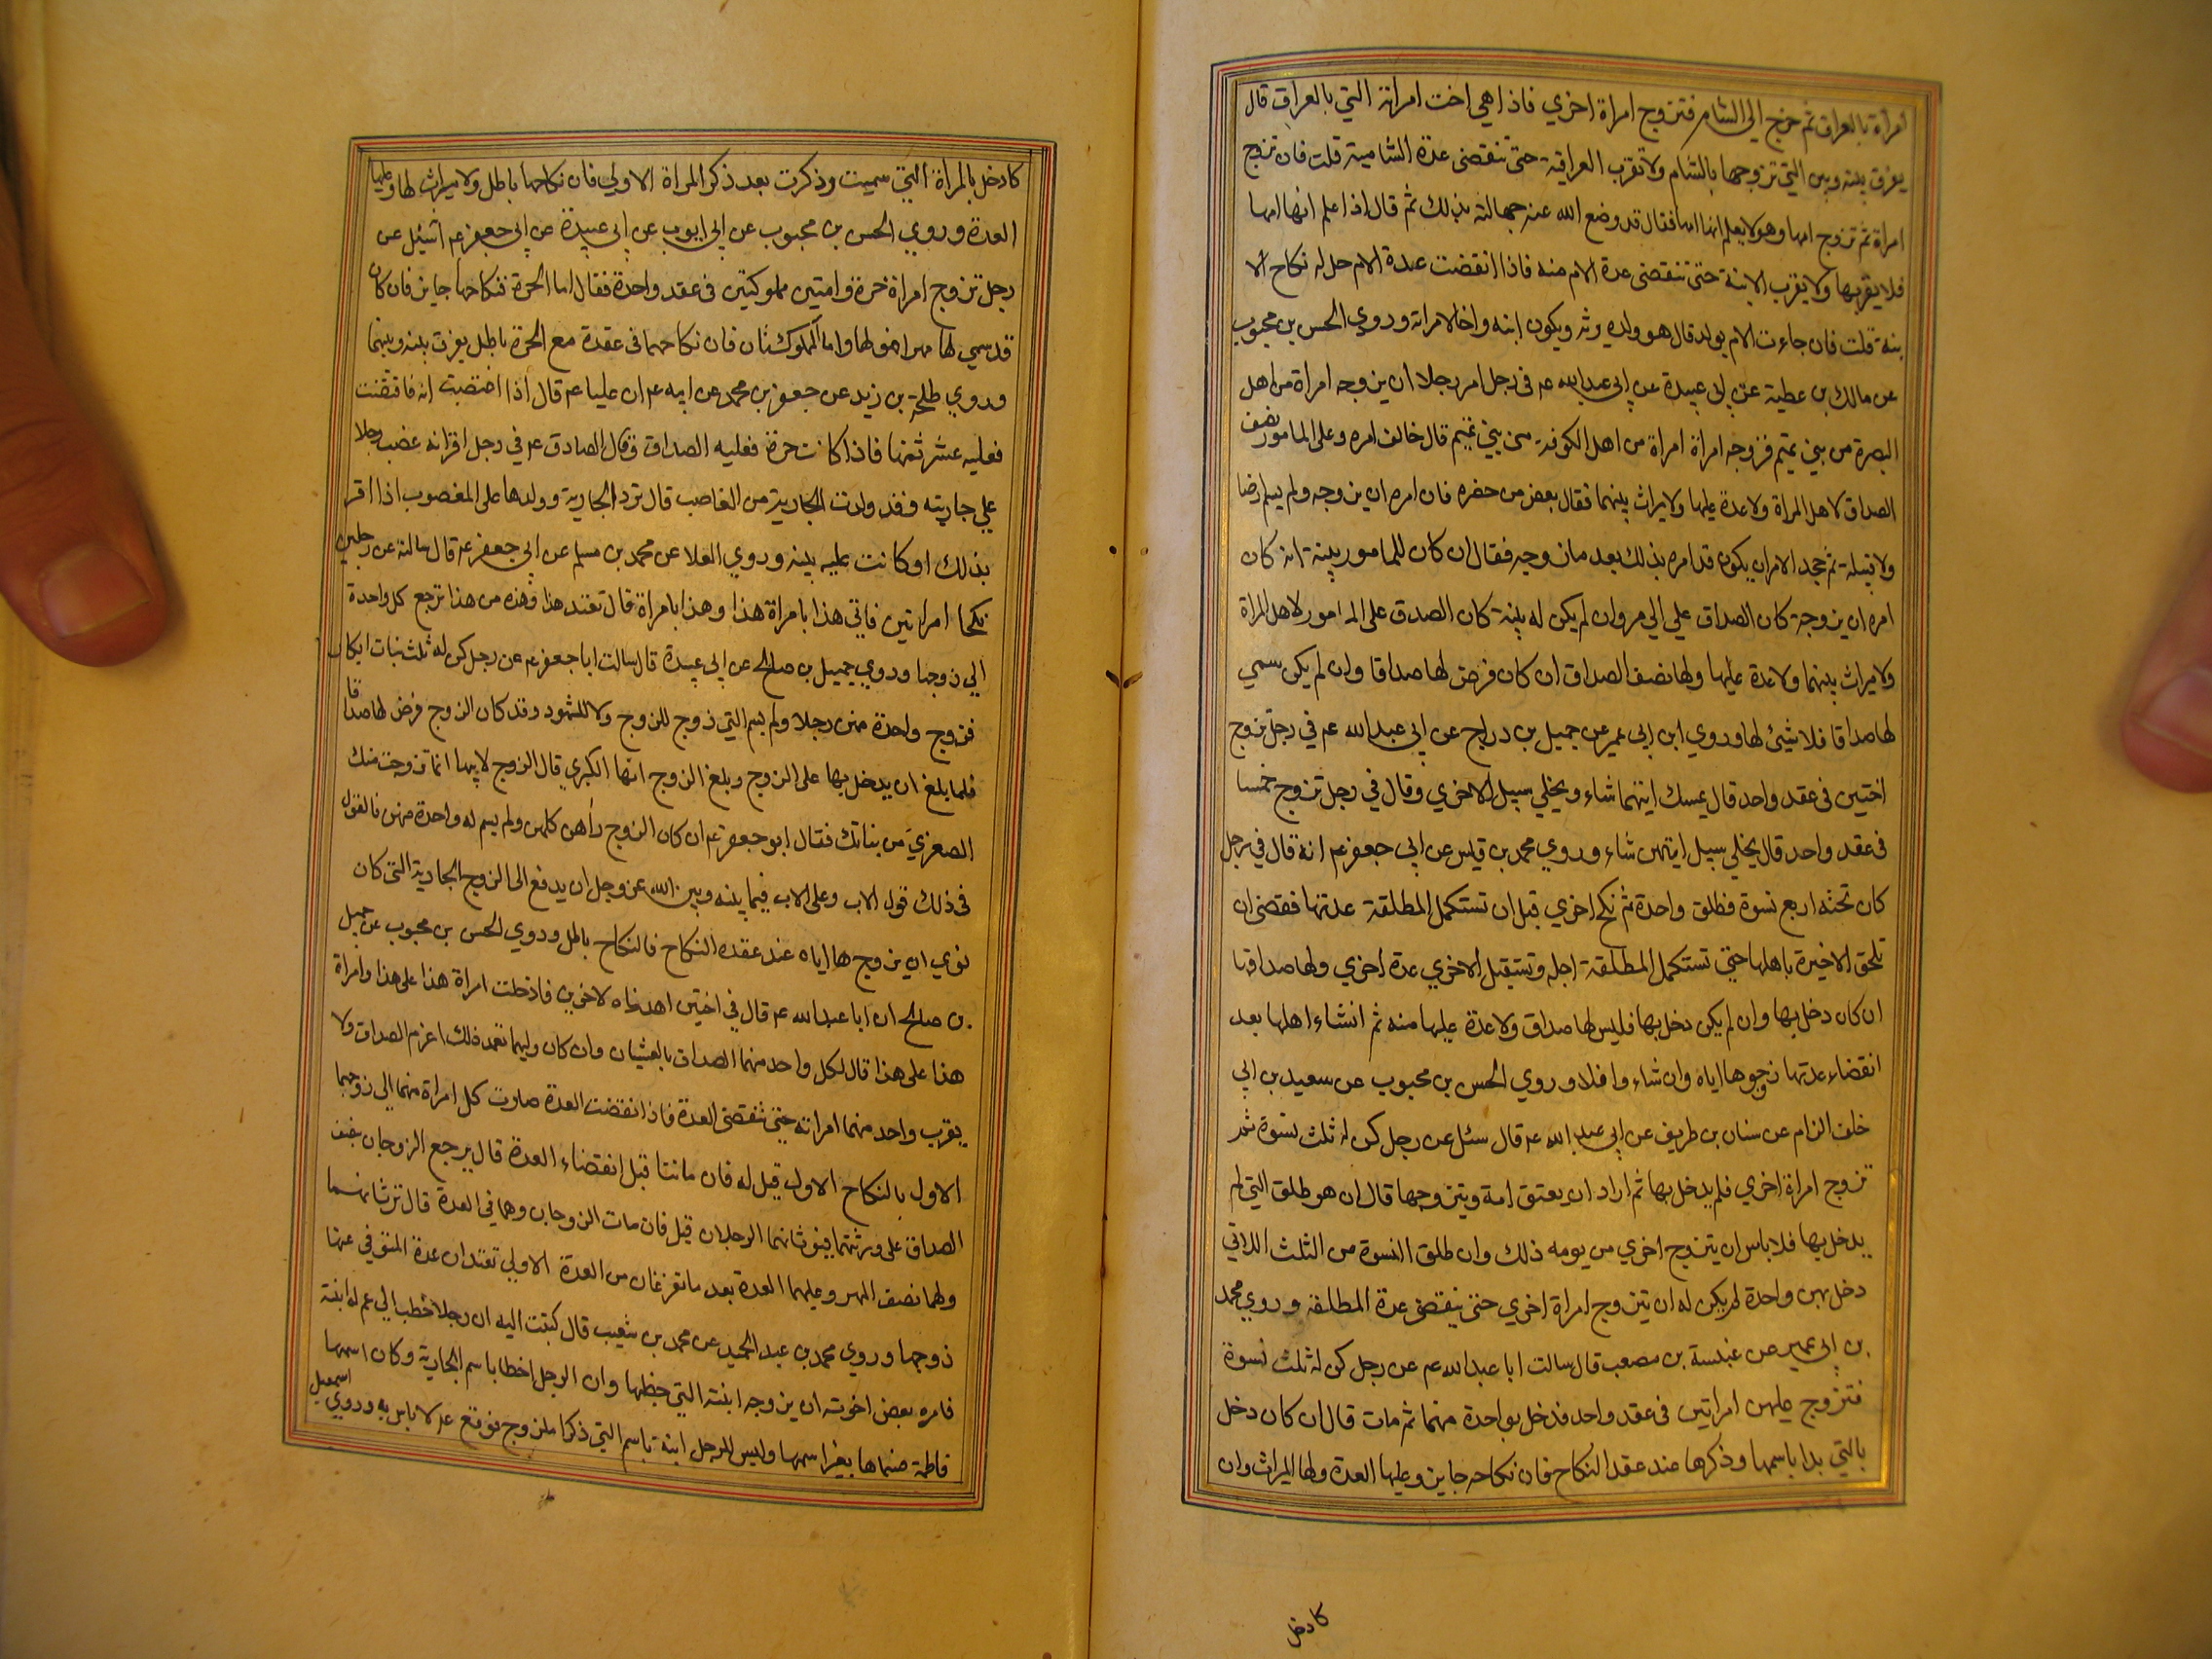 امراة بالعراق ثم خرج الي الشام فتزوج امراة اخري فاذا هي اخت امراته التي بالعراق قال
يفرق بينه وبين التي تزوجها بالشام ولا تقرب العراقية حتى تنقضى عدة الشامية قلت فان تزوج
امراة ثم تزوج امها وهو لا يعلم انها امها فقال قد وضع الله عنه جهالته بذلك ثم قال اذا علم انها امها
فلا يقربها ولا يقرب الابنة حتى تنقضى عدة الام منه فاذا انقضت عدة الام حل له نكاح الا
بنة قلت فان جاءت الام بولد قال هو ولده يرثه ويكون ابنه واخا لامراته وروي الحسن بن محبوب
عن مالك بن عطية عن ابي عبيدة عن ابي عبد الله عم فى رجل امر رجلا ان يزوجه امراة من اهل
البصرة من بني تميم فزوجه امراة امراة من اهل الكوفة من بني تميم قال خالف امره وعلى المامور نصف
الصداق لاهل المراة ولا عدة عليها ولا ميراث بينهما فقال بعض من حضره فان امره ان يزوجه ولم يسم ارضا
ولا قبيلة ثم جحد الامر ان يكون قد امره بذلك بعد ما زوجه فقال ان كان للمامور بينة انه كان
امره ان يزوجه كان الصداق علي الي مر وان لم يكن له بينة كان الصدق على المامور لاهل المراة
ولا ميراث بينهما ولا عدة عليها ولها نصف الصداق ان كان فرض لها صداقا وان لم يكن سمي
لها صداقا فلا شيئ لها وروي ابن ابي عمير عن جميل بن دراج عن ابي عبد الله عم في رجل تزوج
اختين فى عقد واحد قال يمسك ايتهما شاء ويخلي سبيل الاخري وقال في رجل تزوج خمسا
فى عقد واحد قال يخلي سبيل ايتهن شاء وروي محمد بن قيس عن ابي جعفر عم انه قال في رجل
كان تحته اربع نسوة فطلق واحدة ثم نكح اخري قبل ان تستكمل المطلقة عدتها فقضى ان
تلحق الاخيرة باهلها حتى تستكمل المطلقة اجله وتستقبل الاخري عدة اخري ولها صداقها
ان كان دخل بها وان لم يكن دخل بها فليس لها صداق ولا عدة عليها منه ثم ان شاء اهلها بعد
انقضاء عدتها زوجوها اياه وان شاء وا فلا وروي الحسن بن محبوب عن سعيد بن ابي
خلف الزام عن سنان بن طريف عن ابي عبد الله عم قال سئل عن رجل كن له ثلث نسوة ثم
تزوج امراة اخري فلم يدخل بها ثم اراد ان يعتق امة ويتزوجها قال ان هو طلق التي لم
يدخل بها فلا باس ان يتزوج اخري من يومه ذلك وان طلق النسوة من الثلث اللاتي
دخل بهن واحدة لم يكن له ان يتزوج امراة اخري حتى تنقضى عدة المطلقة وروي محمد
بن ابي عمير عن عنبسة بن مصعب قال سالت ابا عبد الله عم عن رجل كن له ثلث نسوة
فتزوج عليهن امراتين فى عقد واحد فدخل بواحدة منهما ثم مات قال ان كان دخل
بالتي بدا باسمها وذكرها عند عقد النكاح فان نكاحه جايز وعليها العدة ولها الميراث وان
كا دخل
كا دخل بالمراة التي سميت وذكرت بعد ذكر المراة الاولي فان نكاحها باطل ولا ميراث لها وعليها
العدة وروي الحسن بن محبوب عن ابي ايوب عن ابي عبيدة عن ابي جعفر عم سئيل عن
رجل تزوج امراة حرة وامتين مملوكتين فى عقد واحدة فقال اما الحرة فنكاحها جايز فان كان
قد سمي لها مهرا فهو لها واما المملوكتان فان نكاحهما فى عقدة مع الحرة باطل يفرق بينه وبينهما
وروي طلحة بن زيد عن جعفر بن محمد عن ابيه عم ان عليا عم قال اذا اغتصبت امة فاقتضت
فعليه عشر ثمنها فاذا كانت حرة فعليه الصداق وقال الصادق عم في رجل اقر انه غصب رجلا
علي جاريته وقد ولدت الجارية من الغاصب قال ترد الجارية وولدها على المغصوب اذا اقر
بذلك او كانت عليه بينة وروي العلا عن محمد بن مسلم عن ابي جعفر عم قال سالته عن رجلين
نكحا امراتين فاتي هذا بامراة هذا وهذا بامراة قال تعتد هذا وهذه من هذا ترجع كل واحدة
الي زوجها وروي جميل بن صالح عن ابي عبيدة قال سالت ابا جعفر عم عن رجل كن له ثلث بنات ابكار
فزوج واحدة منهن رجلا ولم يسم التي زوج للزوج ولا للشهود وقد كان الزوج فرض لها صداقا
فلما بلغ ان يدخل بها على الزوج وبلغ الزوج انها الكبري قال الزوج لابيها انما تزوجت منك
الصغري من بناتك فقال ابو جعفر عم ان كان الزوج راهن كلهن ولم يسم له واحدة منهن فالقول
فى ذلك قول الاب وعلى الاب فيما بينه وبين الله عز وجل ان يدفع الى الزوج الجارية التى كان
نوي ان يزوجها اياه عند عقده النكاح فالنكاح باطل وروي الحسن بن محبوب عن جميل
بن صالح ان ابا عبد الله عم قال في اختين اهديتا لاخوين فادخلت امراة هذا على هذا وامراة
هذا على هذا قال لكل واحد منهما الصداق بالغشيان وان كان وليهما تعمد ذلك اغرم الصداق ولا
يقرب واحد منهما امراته حتى تنقضى العدة فاذا انقضت العدة صارت كل امراة منهما الي زوجهما
الاول بالنكاح الاول قيل له فان ماتتا قبل انقضاء العدة قال يرجع الزوجان بنصف
الصداق على ورثتهما فيرثانهما الرجلان قيل فان مات الزوجان وهما في العدة قال ترثانهما
ولهما نصف المهر وعليهما العدة بعد ما تفرغان من العدة الاولي تعتدان عدة المتوفي عنها
زوجها وروي محمد بن عبد الحميد عن محمد بن شعيب قال كتبت اليه ان رجلا خطب الي عم له ابنته
فامره بعض اخوته ان يزوجه ابنته التي خطبها وان الرجل اخطا باسم الجارية وكان اسمها
فاطمة فسماها بغير اسمها وليس للرجل ابنة باسم التي ذكر المزوج فوقع عم لا باس به وروي اسمعيل